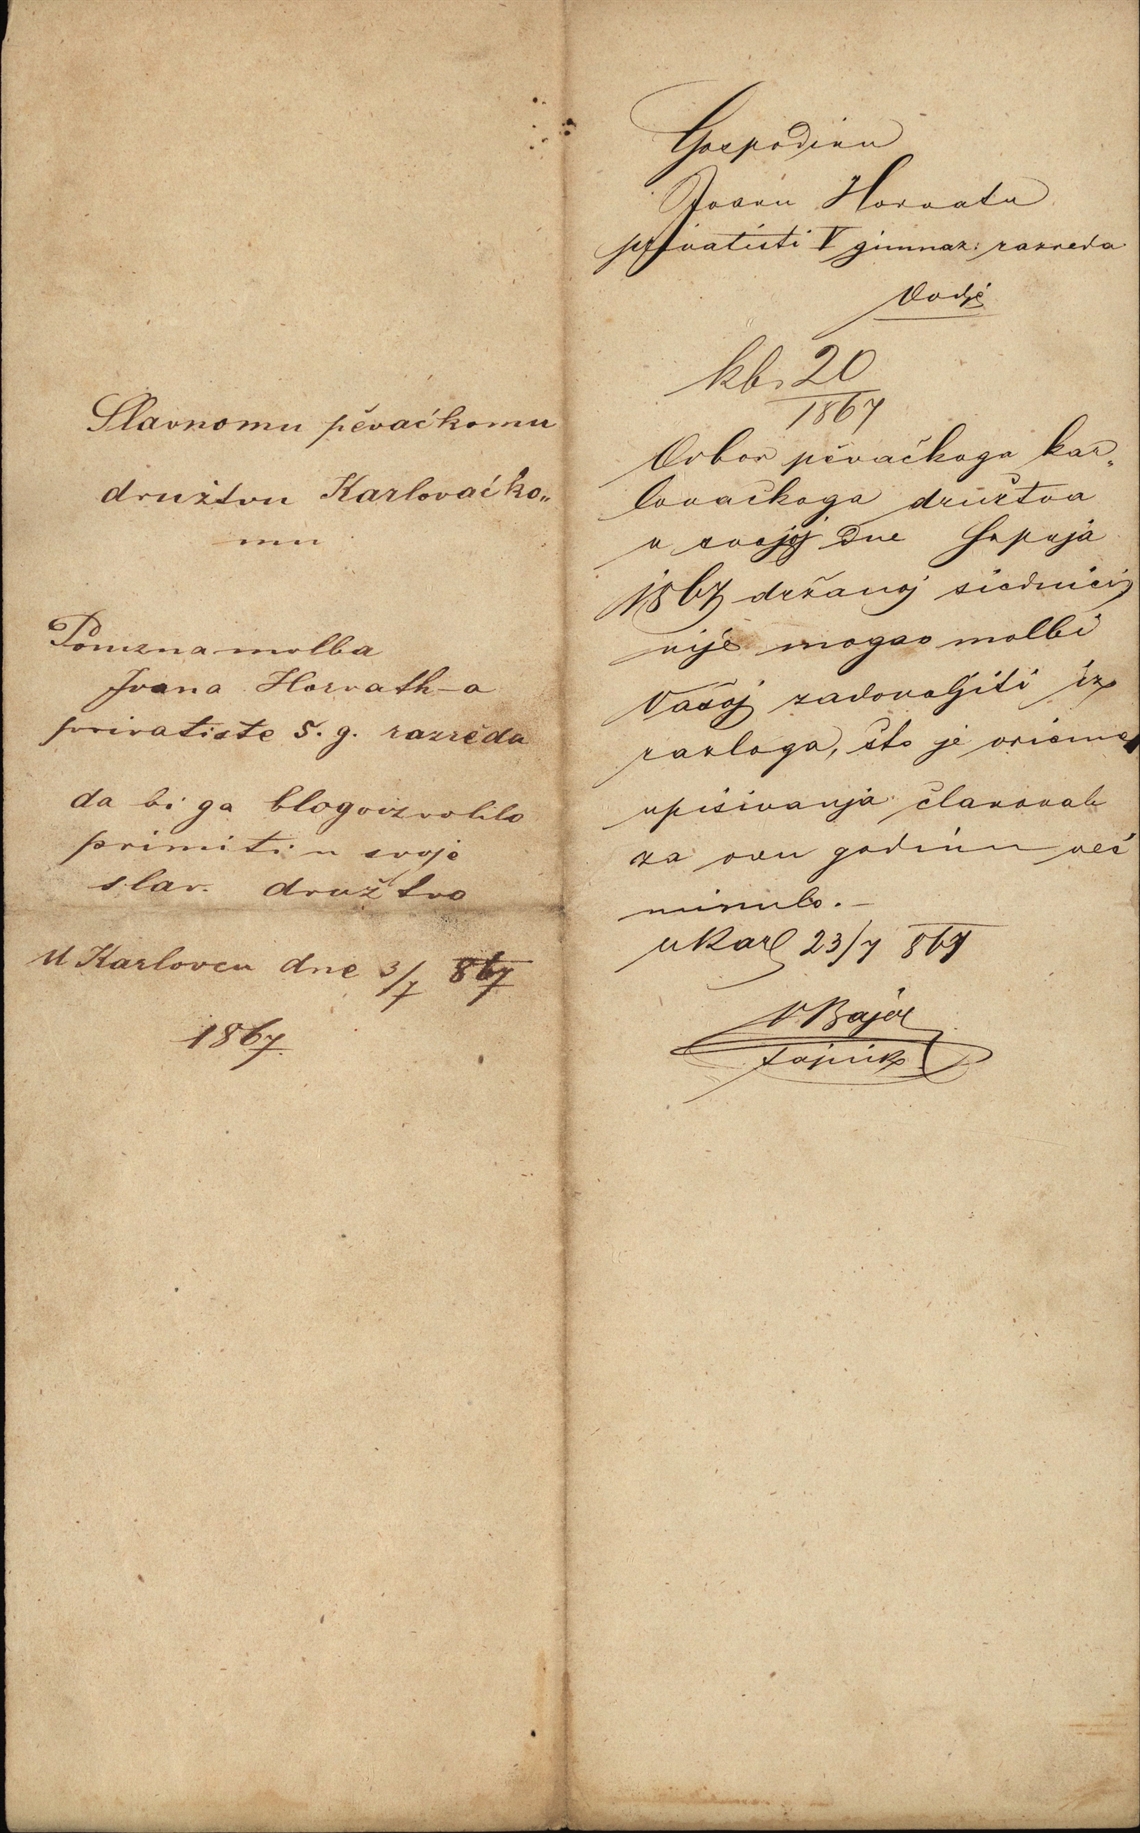 Slavnomu pěvačkomu
družtvu Karlovačko„
mu
Ponizna molba
Ivana Horvath-a
privatiste 5. g. razrěda
da bi ga blagoizvolilo
primiti u svoje
slav. družtvo
U Karlovcu dne 3/7 867
1867.
Gospodinu
Ivanu Horvatu
privatisti V gimnaz: razreda
Ovdje
kb. 20
1867
Odbor pěvačkoga kar„
lovačkoga družtva
u svojoj dne Srpnja
1867 držanoj siednici
nije mogao molbi
Vašoj zadovoljiti iz
razloga, što je vrieme
upisivanja članovah
za ovu godinu već
minulo. —
u Karl 23/7 867
tajnik